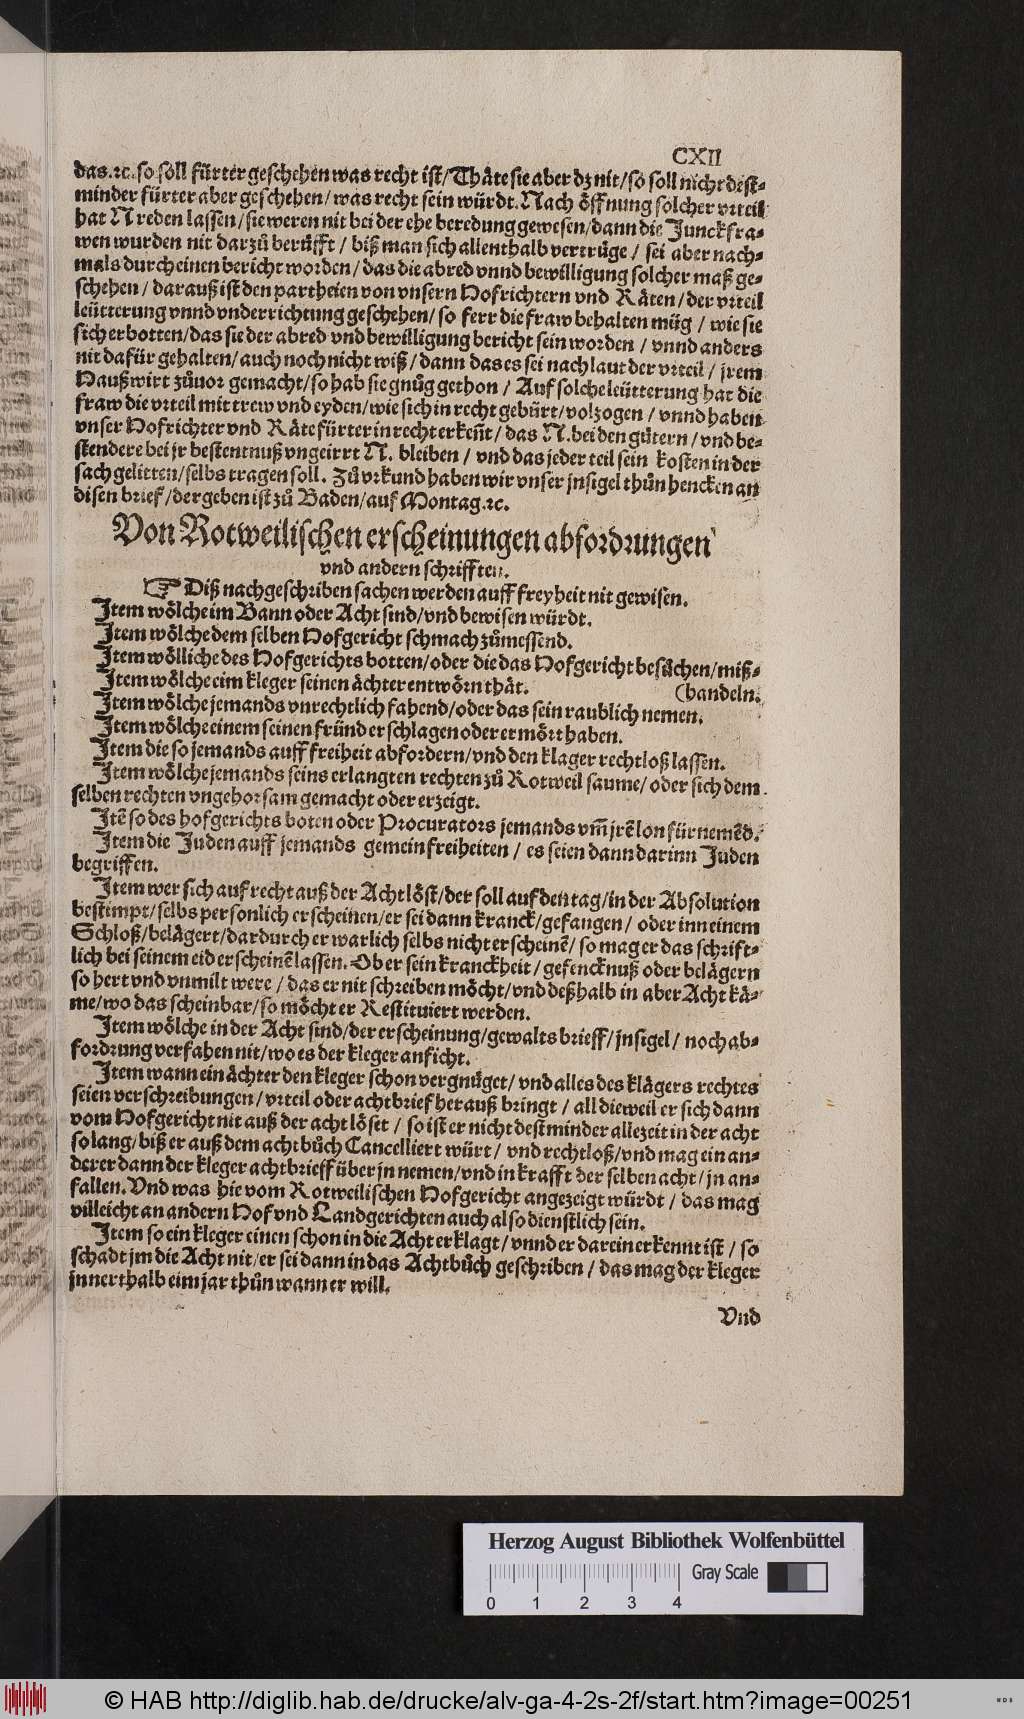 CXII
das.ꝛc.so soll fürter geschehen was recht ist/Thäte sie aber dz nit/so soll nicht dest⸗
minder fürter aber geschehen/was recht sein würdt.Nach öffnung solcher vrteil
hat N reden lassen/sie weren nit bei der ehe beredung gewesen/dann die Junckfra⸗
wen wurden nit darzů berüfft/ biß man sich allenthalb vertrüge/ sei aber nach⸗
mals durch einen bericht worden/das die abred vnnd bewilligung solcher maß ge⸗
schehen/ darauß ist den partheien von vnsern Hofrichtern vnd Räten/der vrteil
leütterung vnnd vnderrichtung geschehen/so ferr die fraw behalten müg/ wie sie
sich erbotten/das sie der abred vnd bewilligung bericht sein worden/ vnnd anders
nit dafür gehalten/auch noch nicht wiß/dann das es sei nach laut der vrteil/ jrem
Haußwirt zůuor gemacht/so hab sie gnůg gethon/ Auf solche leütterung hat die
fraw die vrteil mit trew vnd eyden/wie sich in recht gebürt/volzogen/ vnnd haben
vnser Hofrichter vnd Räte fürter in recht erkeñt/ das N.bei den gütern/vnd be⸗
stendere bei jr bestentnuß vngeirrt N. bleiben/ vnd das jeder teil sein kosten in der
sach gelitten/selbs tragen soll. Zů vrkund haben wir vnser jnsigel thůn hencken an
disen brief/der geben ist zů Baden/auf Montag.ꝛc.
Von Rotweilischen erscheinungen abfordrungen
vnd andern schrifften.
☞ Diß nachgeschriben sachen werden auff freyheit nit gewisen.
Item wölche im Bann oder Acht sind/vnd bewisen würdt.
Item wölche dem selben Hofgericht schmach zůmessend.
Item wölliche des Hofgerichts botten/oder die das Hofgericht besůchen/miß⸗
Item wölche eim kleger seinen ächter entwörn thät. (handeln.
Item wölche jemands vnrechtlich fahend/oder das sein raublich nemen.
Item wölche einem seinen fründ erschlagen oder ermört haben.
Item die so jemands auff freiheit abfordern/vnd den klager rechtloß lassen.
Item wölche jemands seins erlangten rechten zů Rotweil saume/oder sich dem
selben rechten vngehorsam gemacht oder erzeigt.
Itē so des hofgerichts boten oder Procurators jemands vm̃ jrē lon fürnemēd.
Item die Juden auff jemands gemein freiheiten/ es seien dann darinn Juden
begriffen.
Item wer sich auf recht auß der Acht löst/der soll auf den tag/in der Absolution
bestimpt/selbs personlich erscheinen/er sei dann kranck/gefangen/ oder inn einem
Schloß/belägert/dardurch er warlich selbs nicht erscheinē/ so mag er das schrift⸗
lich bei seinem eid erscheinē lassen.Ob er sein kranckheit/gefencknuß oder belägern
so hert vnd vnmilt were/ das er nit schreiben möcht/vnd deßhalb in aber Acht kä⸗
me/wo das scheinbar/so möcht er Restituiert werden.
Item wölche in der Acht sind/der erscheinung/gewalts brieff/jnsigel/ noch ab⸗
fordrung verfahen nit/wo es der kleger anficht.
Item wann ein ächter den kleger schon vergnüget/ vnd alles des klägers rechtes
seien verschreibungen/vrteil oder achtbrief herauß bringt/ all dieweil er sich dann
vom Hofgericht nit auß der acht löset/ so ist er nicht destminder allezeit in der acht
so lang/biß er auß dem achtbůch Cancelliert würt/ vnd rechtloß/vnd mag ein an⸗
derer dann der kleger achtbrieff über jn nemen/vnd in krafft der selben acht/jn an⸗
fallen.Vnd was hie vom Rotweilischen Hofgericht angezeigt würdt/ das mag
villeicht an andern Hof vnd Landgerichten auch also dienstlich sein.
Item so ein kleger einen schon in die Acht erklagt/vnnd er darein erkennt ist/ so
schadt jm die Acht nit/er sei dann in das Achtbůch geschriben/ das mag der kleger
jnnerthalb eim jar thůn wann er will.
Vnd
Herzog August Bibliothek Wolfenbüttel
Gray Scale
0 1 2 3 4
© HAB http://diglib.hab.de/drucke/alv-ga-4-2s-2f/start.htm?image=00251